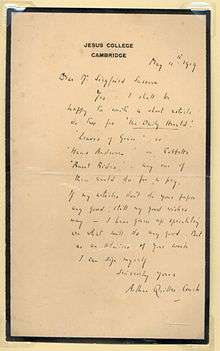 JESUS COLLEGE
CAMBRIDGE
May 4th 1919
Dear Mr Siegfried Sassoon
Yes I shall be
happy to write a short article
or two for "The Daily Herald."
Leaves of Grass: or
'Hans Andersen': or Cobbett's
'Rural Rides': any one of
them would do for a
If my articles don't do your paper
any good, still my good wishes
may — I have given up speculating
on what will do any good. But
as an admirer of your work
I can sign myself
Sincerely yours
Arthur Quiller-Couch